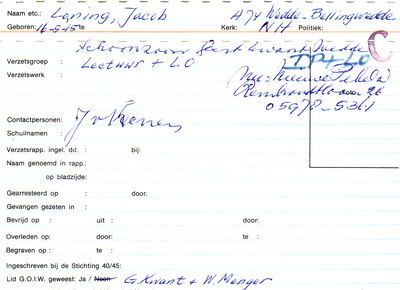 Naam etc.: Laning, Jacob A74 Wedde-Bellingwedde
Geboren: 16-5-15 te Kerk: NH Politiek:
Schoonzoon Kwant Wedde C
Verzetsgroep : Lectuur + LO
Verzetswerk : Nu: Nieuwe Pekela
Rembrandtlaan 26
05978-5361
Contactpersonen:
Schuilnaam :
Verzetsrapp. ingel. dd. : bij:
Naam genoemd in rapp.:
op bladzijde:
Gearresteerd op : door:
Gevangen gezeten in :
Bevrijd op : uit : door:
Overleden op: door: te :
Begraven op : te :
Ingeschreven bij de Stichting 40/45:
Lid G.O.I.W. geweest: Ja / Neen G. Kwant + W. Menger